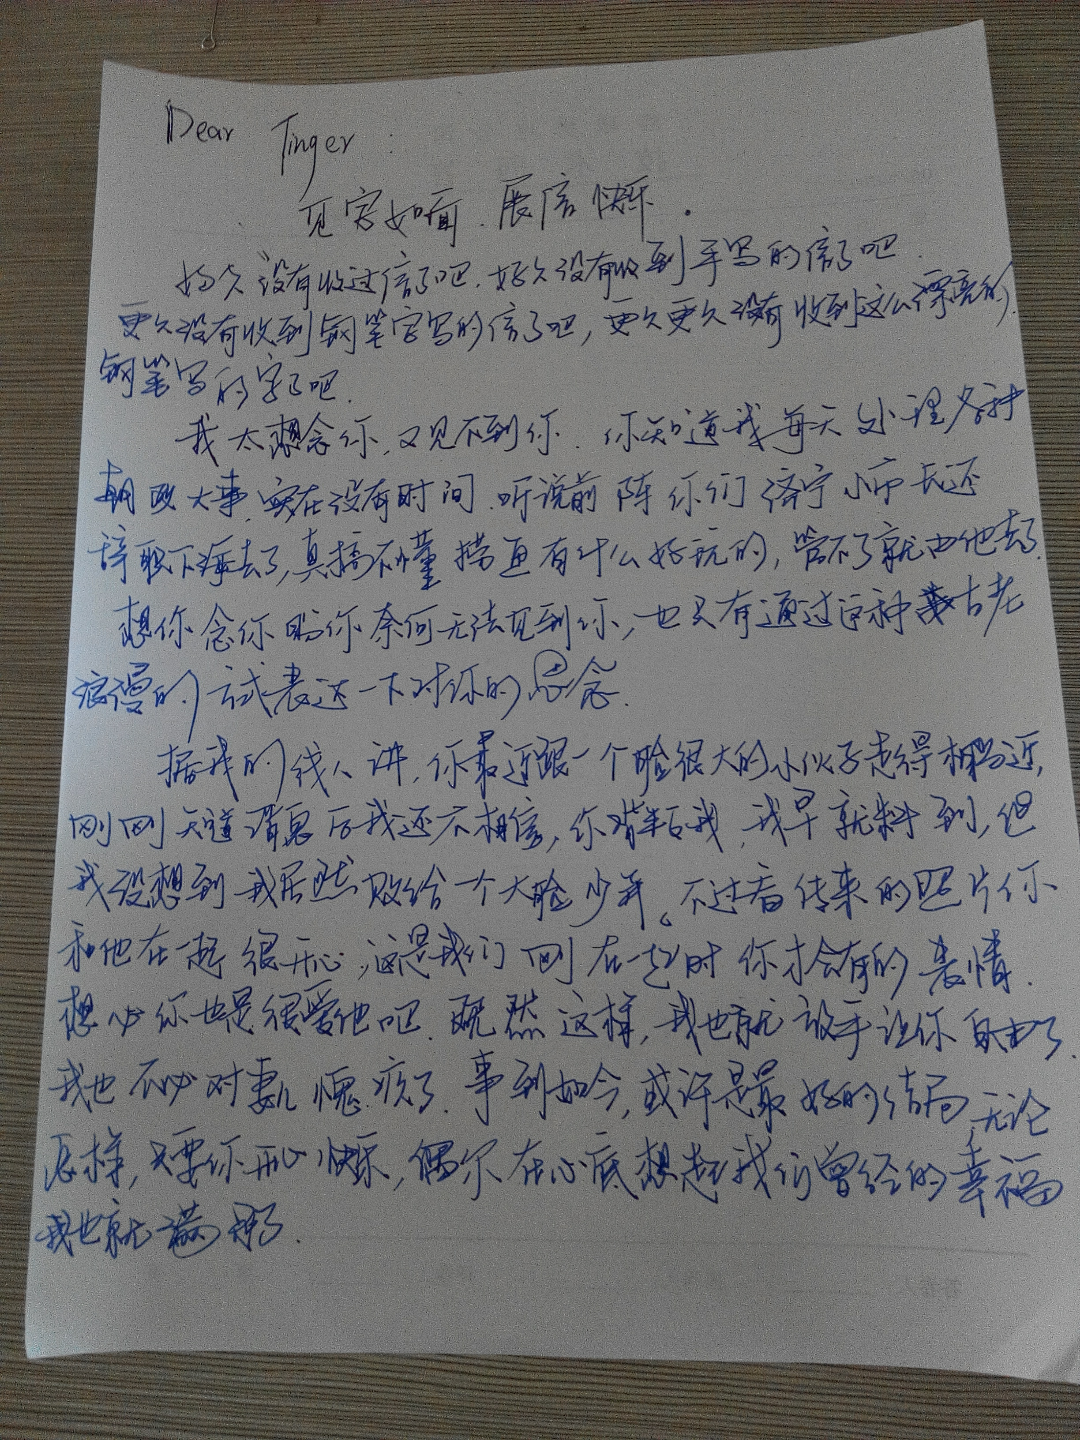 Dear Tinger:
见字如面、展信快乐.
好久没有收过信了吧.好久没有收到手写的信了吧.
更久没有收到钢笔字写的信了吧,更久更久没有收到这么漂亮的
钢笔写的字了吧.
我太想念你,又见不到你.你知道我每天处理各种
朝政大事,实在没有时间.听说前阵你们济宁小市长还
辞职下海去了,真搞不懂捞鱼有什么好玩的,管不了就由他去了.
想你念你盼你奈何无法见到你,也只有通过这种古老
浪漫的方式表达一下对你的思念.
据我的线人讲,你最近跟一个脸很大的小伙子走得相当近,
刚刚知道消息后我还不相信,你背弃我,我早就料到,但
我没想到我居然败给一个大脸少年。不过看传来的照片你
和他在一起很开心,这是我们刚在一起时你才会有的表情.
想必你也是很爱他吧.既然这样,我也就放手让你自由了.
我也不必对妻儿愧疚了.事到如今,或许是最好的结局,无论
怎样,只要你开心快乐,偶尔在心底想起我们曾经的幸福
我也就满足了.